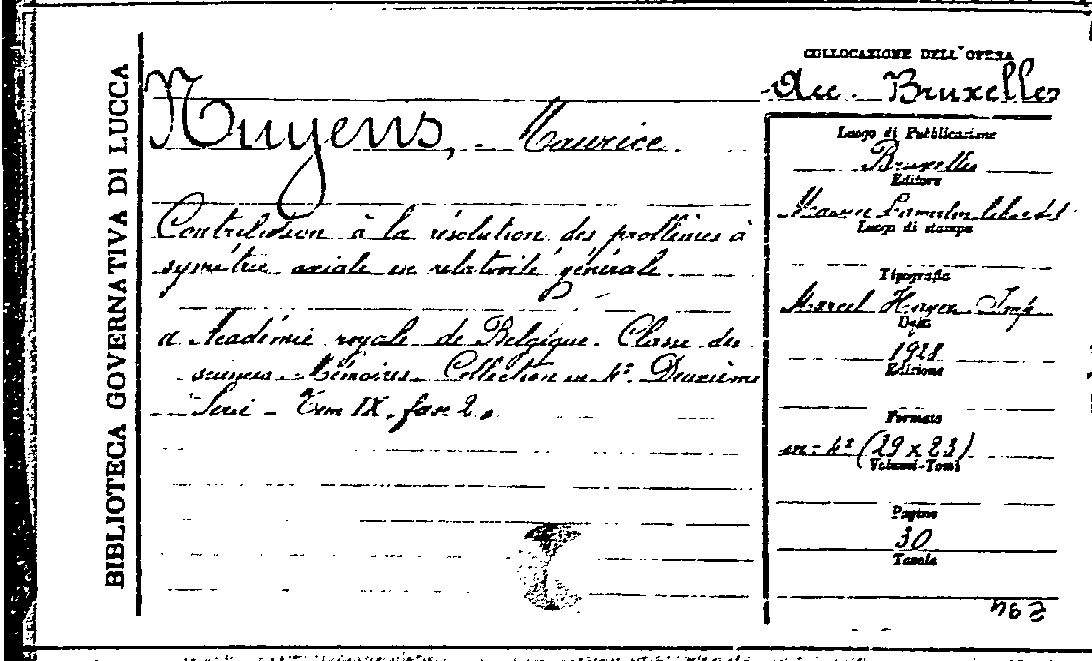 BIBLIOTECA GOVERNATIVA DI LUCCA
Nuyens, Maurice.
Contribution à la résolution des problèmes à
symétrie axiale en relativité générale.
Académie royale de Belgique. Classe des
sciences. Mémoires. Collection in-4º. Deuxième
Série - Tom IX, fasc 2.
COLLOCAZIONE DELL'OPERA
Acc. Bruxelles
Luogo di Pubblicazione
Bruxelles
Editore
Lamertin
Luogo di stampa
Tipografia
Marcel Hayez Imp
Data
1928
Edizione
Formato
in-4º (29 x 23)
Volumi-Tomi
Pagine
30
Tavole